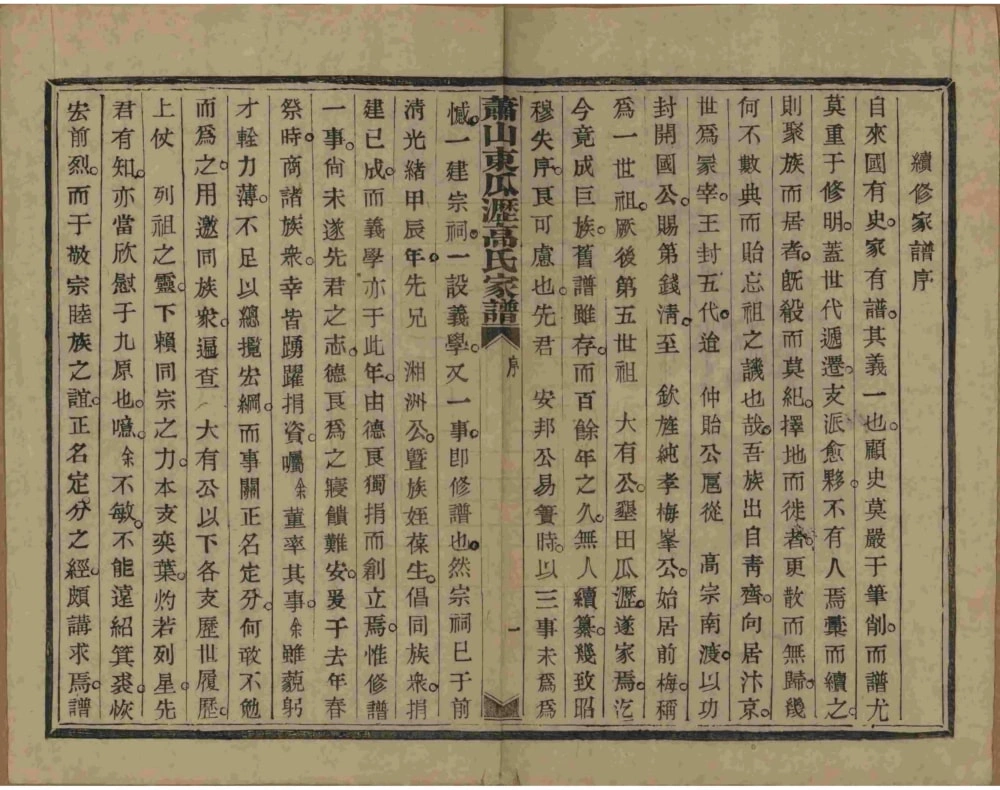 續修家譜序
自來國有史。家有譜。其義一也。顧史莫嚴于筆削。而譜尤
莫重于修明。蓋世代遞遷。支派愈夥。不有人焉彚而續之。
則聚族而居者。既殺而莫紀。擇地而徙者。更散而無歸。幾
何不數典而貽忘祖之譏也哉。吾族出自青齊。向居汴京。
世爲冡宰。王封五代。迨　仲貽公扈從　高宗南渡。以功
封開國公。賜第錢淸。至　欽旌純孝梅峯公。始居前梅。稱
爲一世祖。厥後第五世祖　大有公。墾田瓜瀝。遂家焉。迄
今竟成巨族。舊譜雖存。而百餘年之久。無人續纂。幾致昭
穆失序。良可慮也。先君　安邦公易簀時。以三事未爲爲
蕭山東瓜瀝高氏家譜　序　一
憾。一建宗祠。一設義學。又一事卽修譜也。然宗祠已于前
淸光緒甲辰年。先兄　湘洲公。曁族姪葆生。倡同族衆。捐
建已成。而義學亦于此年。由德良獨捐而創立焉。惟修譜
一事。尙未遂先君之志。德良爲之寢饋難安。爰于去年春
祭時。商諸族衆。幸皆踴躍捐資。囑余董率其事。余雖藐躬
才輇力薄。不足以總攬宏綱。而事關正名定分。何敢不勉
而爲之。用邀同族衆。逼查　大有公以下各支歷世履歷。
上仗　列祖之靈。下賴同宗之力。本支奕葉。灼若列星。先
君有知。亦當欣慰于九原也。噫。余不敏。不能遠紹箕裘。恢
宏前烈。而于敬宗睦族之誼。正名定分之經。頗講求焉。譜